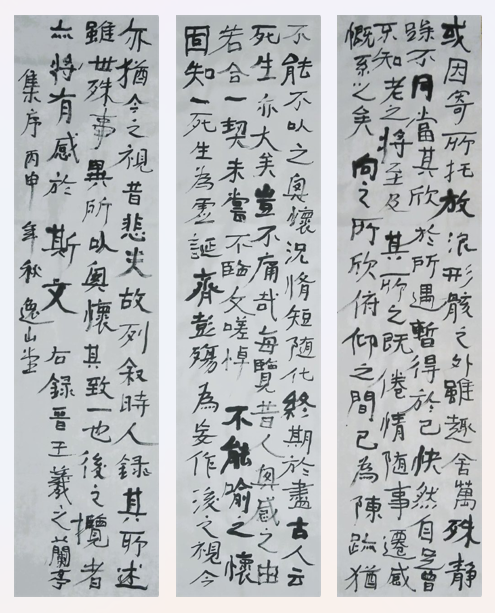 或因寄所托放浪形骸之外雖趣舍萬殊靜
躁不同當其欣於所遇暫得於己快然自足曾
不知老之將至及其所之既倦情随事遷感
慨系之矣向之所欣俯仰之間已為陳跡猶
不能不以之興懷況脩短随化終期於盡古人云
死生亦大矣豈不痛哉每覽昔人興感之由
若合一契未嘗不臨文嗟悼不能喻之懷
固知一死生為虛誕齊彭殤為妄作後之視今
亦猶今之視昔悲夫故列叙時人錄其所述
雖世殊事異所以興懷其致一也後之攬者
亦將有感於斯文 右錄晋王羲之蘭亭
集序丙申年秋逸山堂